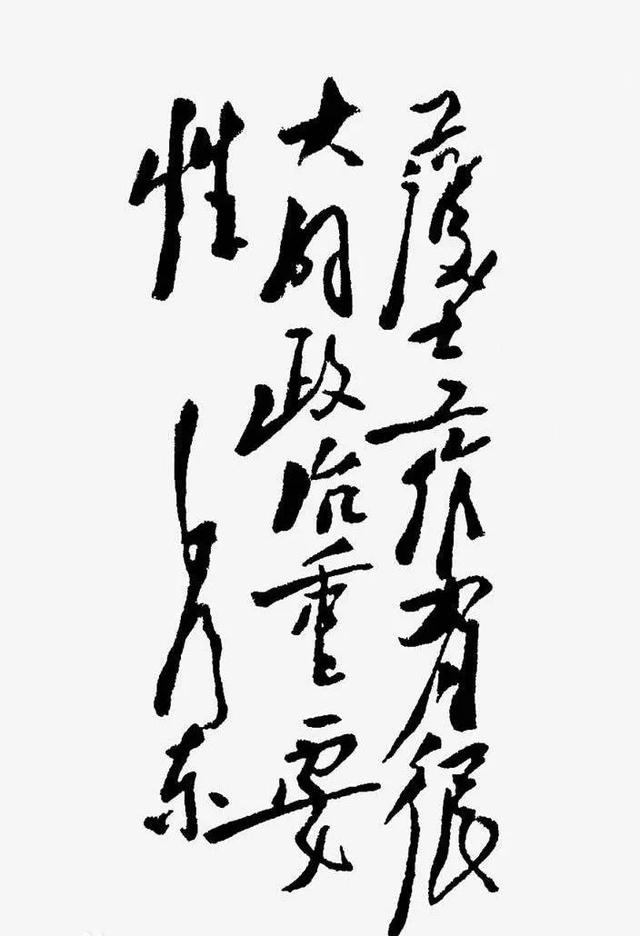 護士工作有很
大的政治重要
性
毛泽东